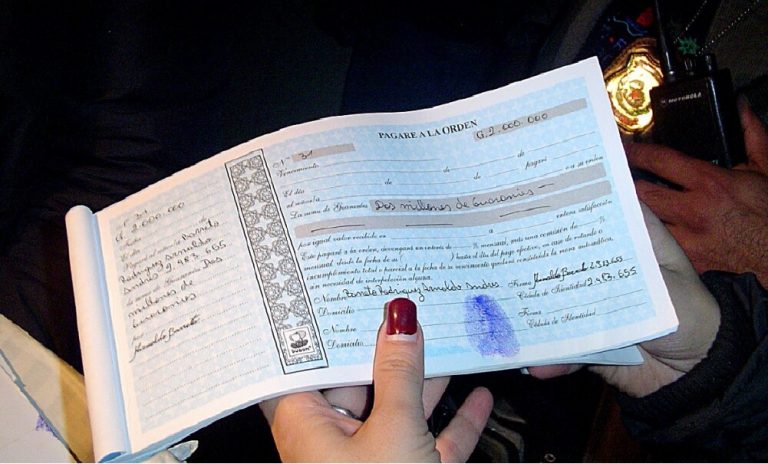 Nº 31
G. 2.000.000
Fecha
El día de
Pagaré al señor Barreto
Rodriguez Arnaldo
Andres 2.483.655
millones de Dos
Guaranies
por
PAGARE A LA ORDEN
Nº 31
G. 2.000.000
Vencimiento de de
El día de de pagaré
al señor/a o a su orden
La suma de Guaraníes Dos millones de Guaranies
por igual valor recibido en a entera satisfacción
Este pagaré a la orden, devengará un interés de % mensual, más una comisión de %
mensual, desde la fecha de su ( ) hasta el día del pago efectivo, en caso de retardo o
incumplimiento total o parcial a la fecha de su vencimiento quedará constituida la mora automática,
sin necesidad de interpelación alguna.
Nombre Barreto Rodriguez Arnaldo Andres Firma
Domicilio Cédula de Identidad 2.483.655
Nombre Firma
Domicilio Cédula de Identidad
MOTOROLA